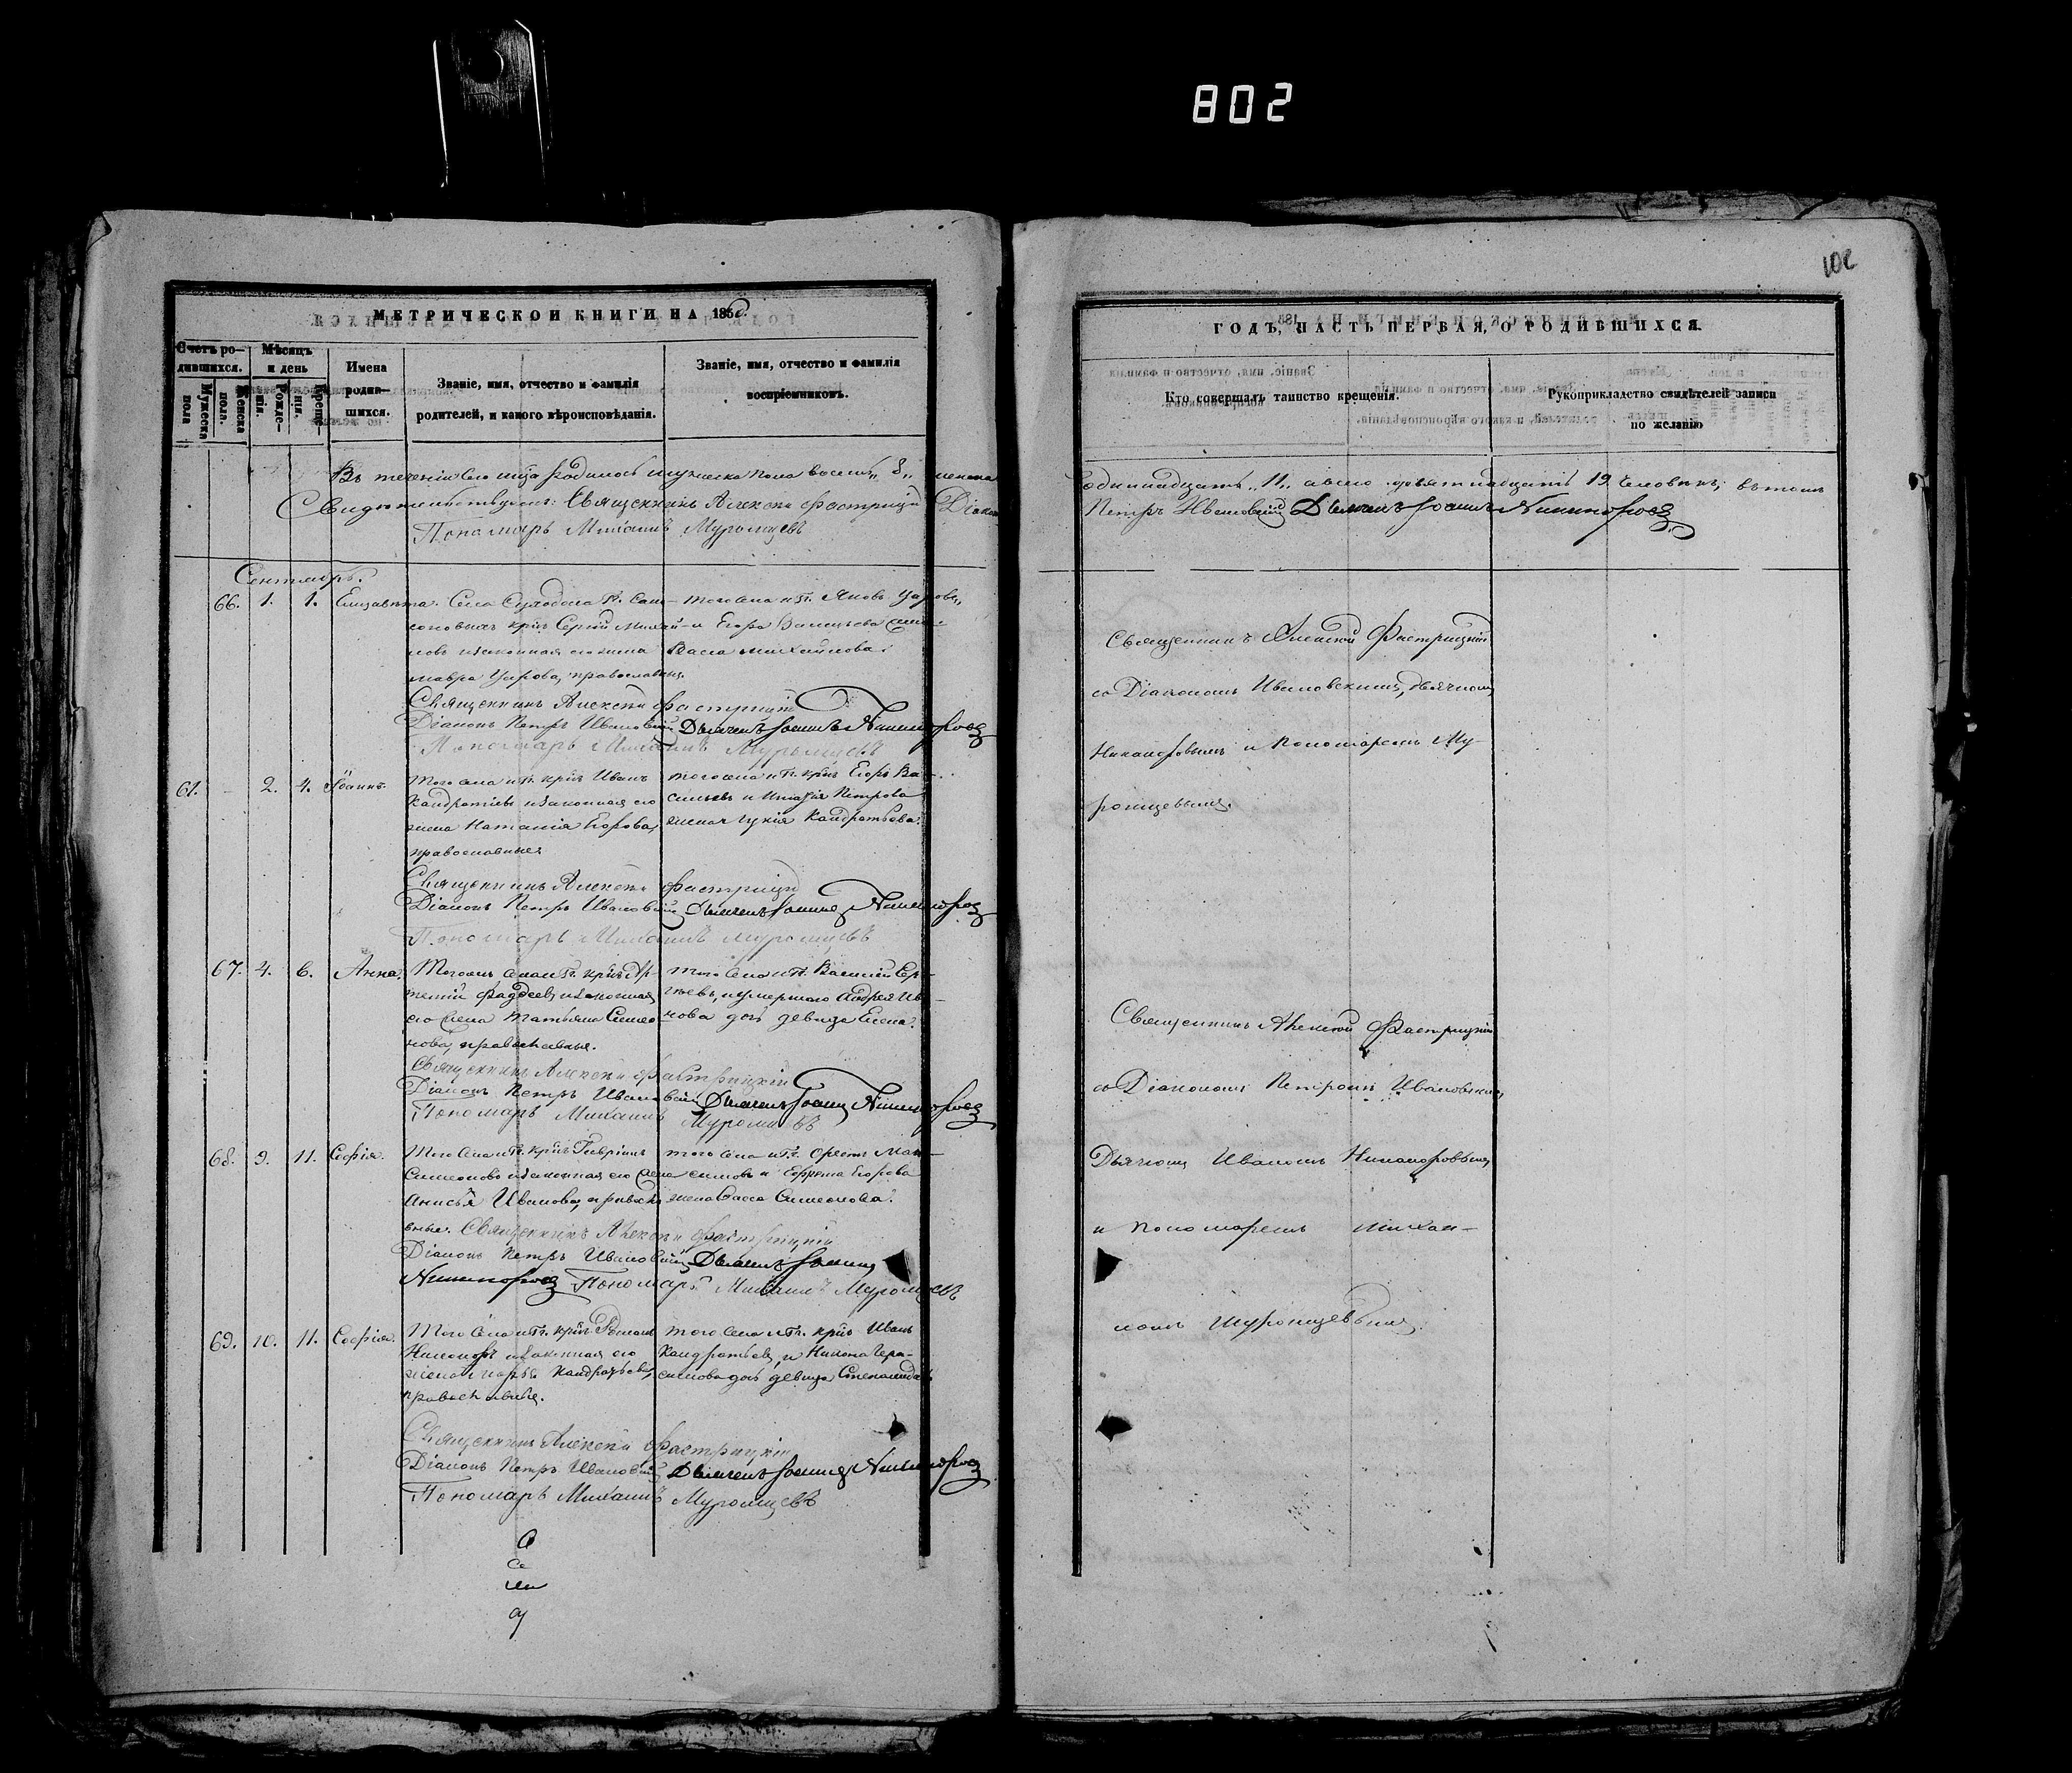 802
102
МЕТРИЧЕСКОИ КНИГИ НА 1856.
Счетъ ро-
дившихся.
Мѣсяцъ
и день
Мужеска
пола
Женска
пола.
Рожде-
нія.
Креще-
нія.
Имена
родив-
шихся.
Званіе, имя, отчество и фамилія
родителей, и какого вѣроисповѣданія.
Званіе, имя, отчество и фамилія
воспріемниковъ.
Въ теченіи сего мца родилось мужеска пола восемь „8„ женска
Свидѣтельствуемъ: Священникъ Алексѣй Фастрицкій Діаконъ
Пономарь Михаилъ Муромцевъ
Сентябрь.
66. 1. 1. Елизавета.
Села Суходола
крнъ Сергій
и законная его жена
Мавра Уарова, православн.
того села Яковъ Уаровъ,
и Егора
Васса Михайлова.
Священникъ Алексѣй Фастрицкій
Діаконъ Петръ Ивановскій Дьячекъ Іоаннъ Никифоровъ
Пономарь Михаилъ Муромцевъ
61. - 2. 4. Іоаннъ.
Того села и Гг. крнъ Иванъ
Кандратіевъ и законная его
жена Наталія Егорова,
православные.
того села и Гг. крнъ Егоръ Ва-
сильевъ и Петрова
жена Кандратьева.
Священникъ Алексѣй Фастрицкій
Діаконъ Петръ Ивановскій Дьячекъ Іоаннъ Никифоровъ
Пономарь Михаилъ Муромцевъ
67. 4. 6. Анна.
Тогожъ села и Гг. крнъ Ар-
темій Фаддеевъ, и законная
его жена Татьяна Симео-
нова, православные.
того села и Гг. Василій Сер-
гѣевъ, и умершаго Андрея Ив-
нова дочь девица Елена.
Священникъ Алексѣй Фастрицкій
Діаконъ Петръ Ивановскій Дьячекъ Іоаннъ Никифоровъ
Пономарь Михаилъ Муромцевъ
68. 9. 11. Софія.
Того села и Гг. крнъ Гавріилъ
Симеоновъ и законная его жена
Анисья Иванова, правосла-
вные.
того села и Гг. Орестъ Мак-
симовъ и Ефрема Егорова
жена Васса Симеонова.
Священникъ Алексѣй Фастрицкій
Діаконъ Петръ Ивановскій Дьячекъ Іоаннъ
Никифоровъ Пономарь Михаилъ Муромцевъ
69. 10. 11. Софія.
Того села и Гг. крнъ Романъ
и законная его
жена Марья Кандратьева,
православные.
того села и Гг. крнъ Иванъ
Кандратьевъ, и Никона Гера-
симова дочь девица Степанида.
Священникъ Алексѣй Фастрицкій
Діаконъ Петръ Ивановскій Дьячекъ Іоаннъ Никифоровъ
Пономарь Михаилъ Муромцевъ
ГОДЪ, ЧАСТЬ ПЕРВАЯ, О РОДИВШИХСЯ.
Кто совершалъ таинство крещенія.
Рукоприкладство свидѣтелей записи
по желанію
одиннадцать „11„ а всего девятнадцать 19 человекъ; въ томъ
Петръ Ивановскій Дьячекъ Іоаннъ Никифоровъ
Священникъ Алексѣй Фастрицкій
со Діакономъ Ивановскимъ, дьячкомъ
Никифоровымъ и Пономаремъ Му-
ромцевымъ.
Священникъ Алексѣй Фастрицкій
со Діакономъ Петромъ Ивановскимъ
Дьячкомъ Иваномъ Никифоровымъ
и Пономаремъ Михаи-
ломъ Муромцевымъ.